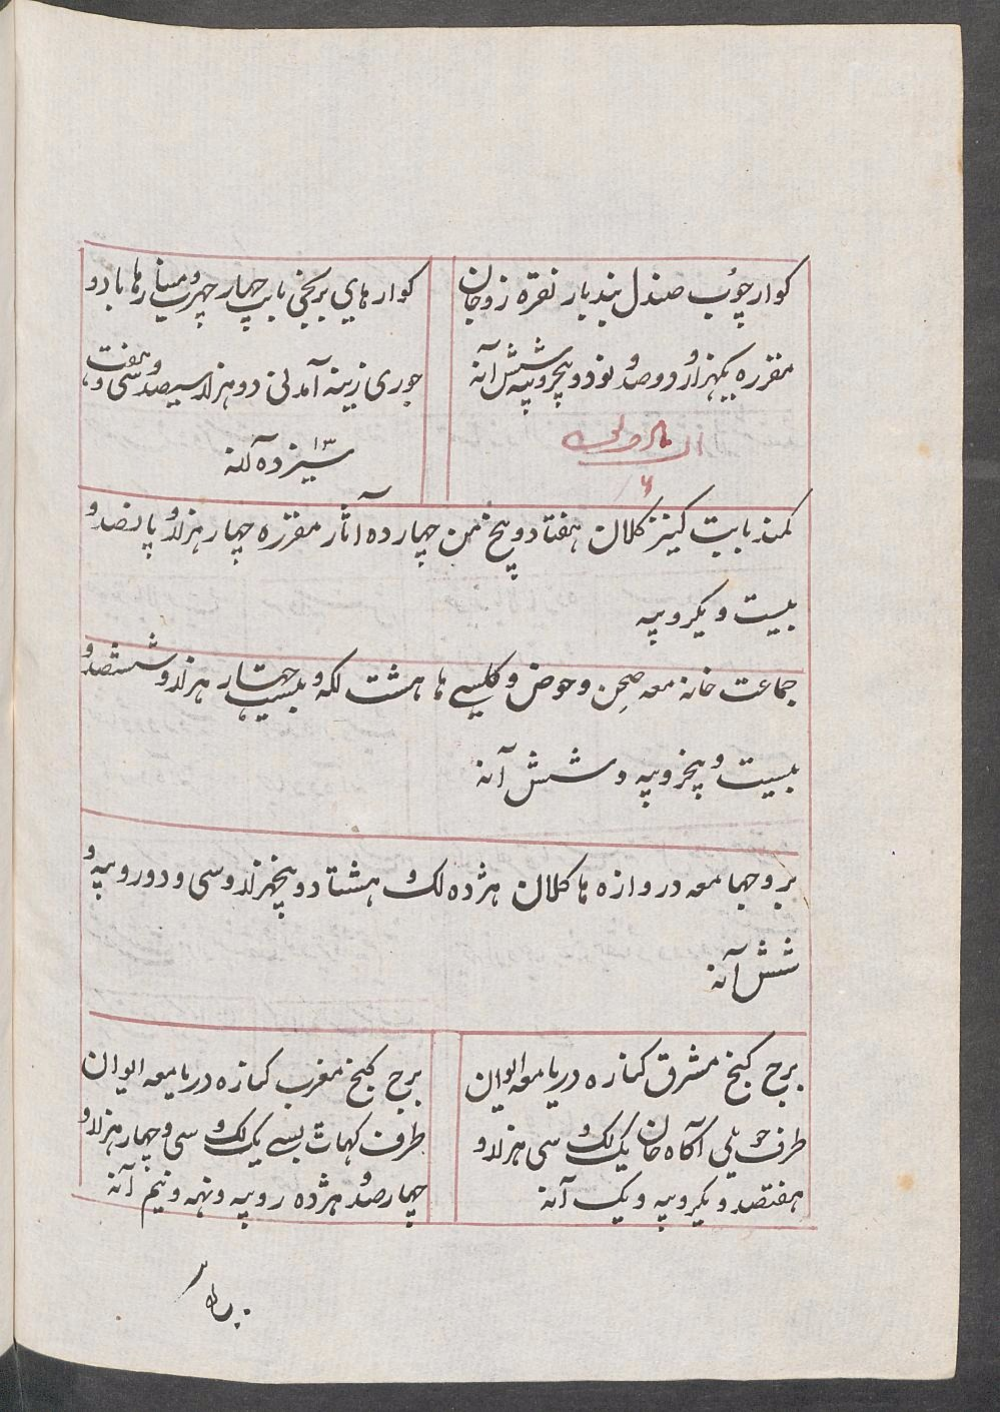 کوار چوب صندل بندبار نقره زوجان
مقرره یکهزار و دوصد و نود و پنجروپیه شش آنه
کوارهای برنجی بابت چهار چهپر و مینارها با دو
جوری زینه آمدنی دو هزار سیصد و سی و هفت و
سیزده آنه ۱۳
۶
کمند بابت کینز کلان هفتاد و پنج من چهارده آثار مقرره چهار هزار و پانصد و
بیست و یکروپیه
جماعت خانه معه صحن و حوض و کلسی ها هشت لکه و بیست چهار هزار و ششصد و
بیست و پنجروپیه و شش آنه
بروجها معه دروازه ها کلان هژده لک و هشتاد و پنجهزار و سی و دو روپیه و
شش آنه
برج کنج مشرق کنازه دریا معه ایوان
طرف حویلی آگاه خان یک لک و سی هزار و
هفتصد و یکروپیه و یک آنه
برج کنج مغرب کنازه دریا معه ایوان
طرف کهات بسی یک لک و سی و چهار هزار و
چهارصد و هژده روپیه و نهه و نیم آنه